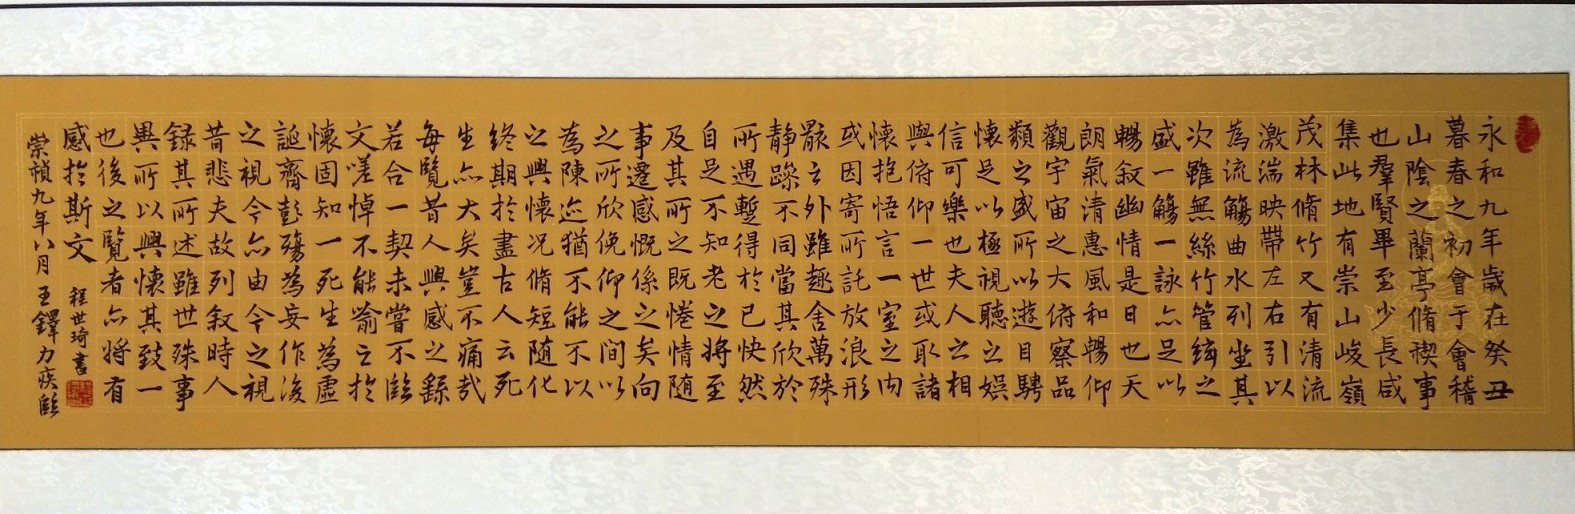 永和九年歲在癸丑
暮春之初會于會稽
山陰之蘭亭脩稧事
也羣賢畢至少長咸
集此地有崇山峻嶺
茂林脩竹又有清流
激湍映帶左右引以
為流觴曲水列坐其
次雖無絲竹管絃之
盛一觴一詠亦足以
暢敘幽情是日也天
朗氣清惠風和暢仰
觀宇宙之大俯察品
類之盛所以遊目騁
懷足以極視聽之娛
信可樂也夫人之相
與俯仰一世或取諸
懷抱悟言一室之內
或因寄所託放浪形
骸之外雖趣舍萬殊
靜躁不同當其欣於
所遇暫得於己快然
自足不知老之將至
及其所之既惓情隨
事遷感慨係之矣向
之所欣俛仰之間以
為陳迹猶不能不以
之興懷况脩短随化
終期於盡古人云死
生亦大矣豈不痛哉
每覽昔人興感之繇
若合一契未嘗不臨
文嗟悼不能喻之於
懷固知一死生為虛
誕齊彭殤為妄作後
之視今亦由今之視
昔悲夫故列敘時人
録其所述雖世殊事
異所以興懷其致一
也後之覽者亦將有
感於斯文
程世琦書
崇禎九年八月王鐸力疾臨